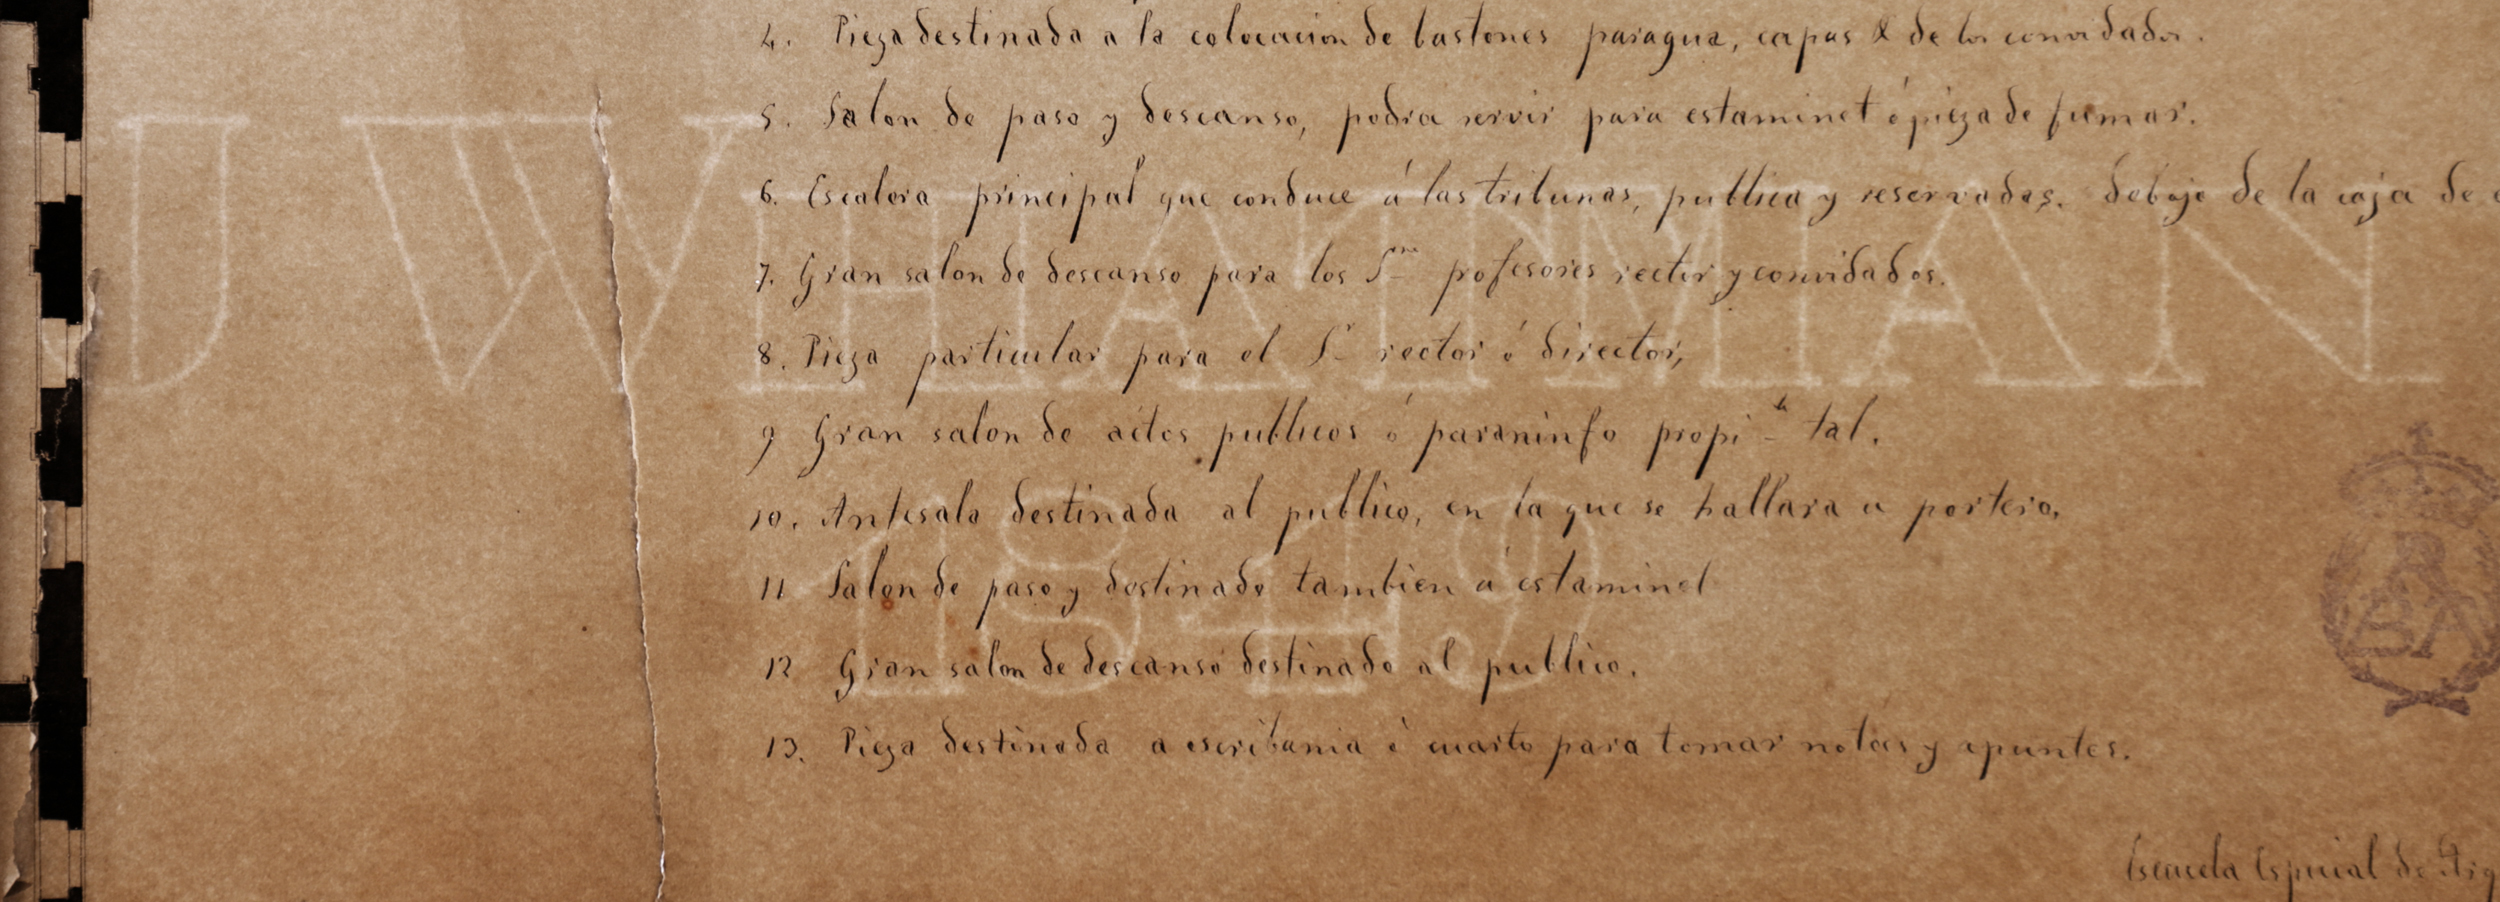 4. Pieza destinada a la colocacion de bastones paragua, capas & de los convidados.
5. Salon de paso y descanso, podra servir para estaminet ó pieza de fumar.
6. Escalera principal que conduce á las tribunas, publica y reservadas. debajo de la caja de
7. Gran salon de descanso para los Sres profesores rector y convidados.
8. Pieza particular para el Sr rector ó director,
9 Gran salon de actos publicos ó paraninfo propite tal.
10. Antesala destinada al publico, en la que se hallara a portero.
11 Salon de paso y destinado tambien á estaminet
12 Gran salon de descanso destinado al publico.
13. Pieza destinada a escribania ó cuarto para tomar notas y apuntes.
J WHATMAN
1849
Escuela Especial de Arq